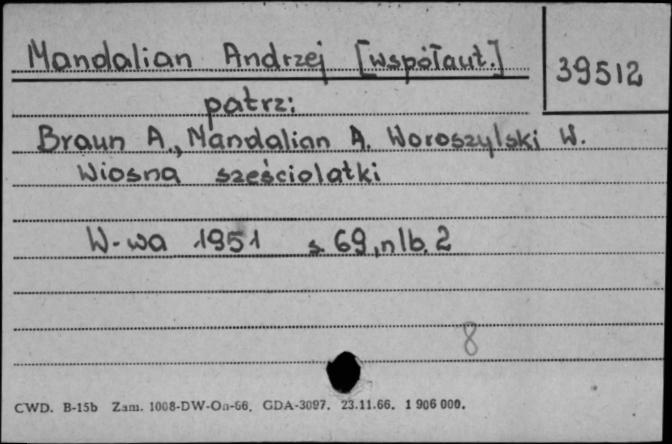 Mandalian Andrzej [współaut.]
39512
patrz:
Braun A., Mandalian A. Woroszylski W.
Wiosna sześciolatki
W-wa 1951 s. 69, nlb. 2
8
CWD. B-15b Zam. 1008-DW-On-66. GDA-3097. 23.11.66. 1 906 000.